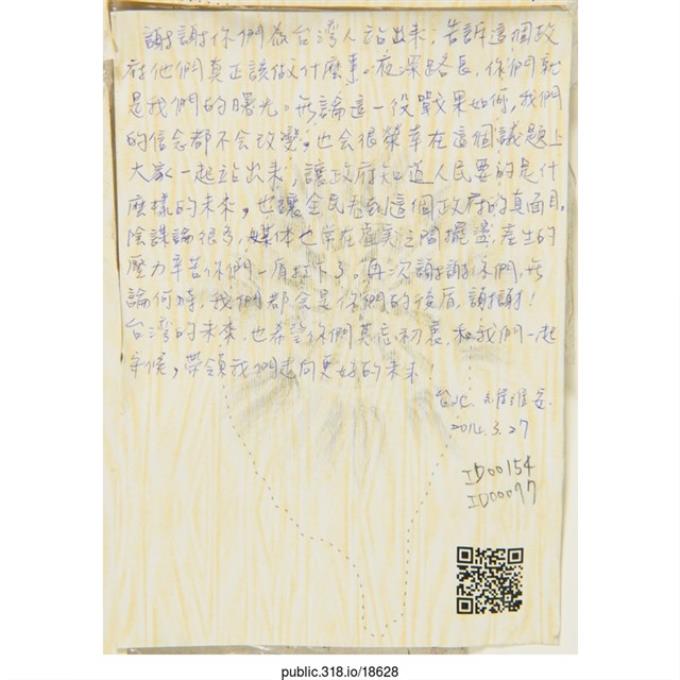 謝謝你們為台灣人站出來,告訴這個政
府他們真正該做什麼事。夜深路長,你們就
是我們的曙光。無論這一役戰果如何,我們
的信念都不会改變,也会很榮幸在這個議題上
大家一起站出來,讓政府知道人民要的是什
麼樣的未來,也讓全民看到這個政府的真面目。
陰謀論很多,媒体也常在虛実之間擺盪,産生的
壓力辛苦你們一肩扛下了。再次謝謝你們,無
論何時,我們都会是你們的後盾,謝謝!
台湾的未來,也希望你們莫忘初衷,和我們一起
守候,帶領我們走向更好的未來!
2014.3.27
ID00154
ID00097
public.318.io/18628